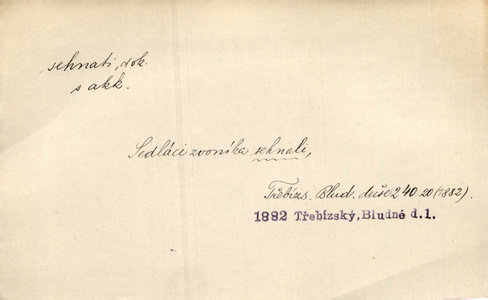 sehnati, dok.
s akk.
Sedláci zvoníka sehnali,
Třebízs. Blud. duše 2 40 20 (1882).
1882 Třebízský, Bludné d.1.